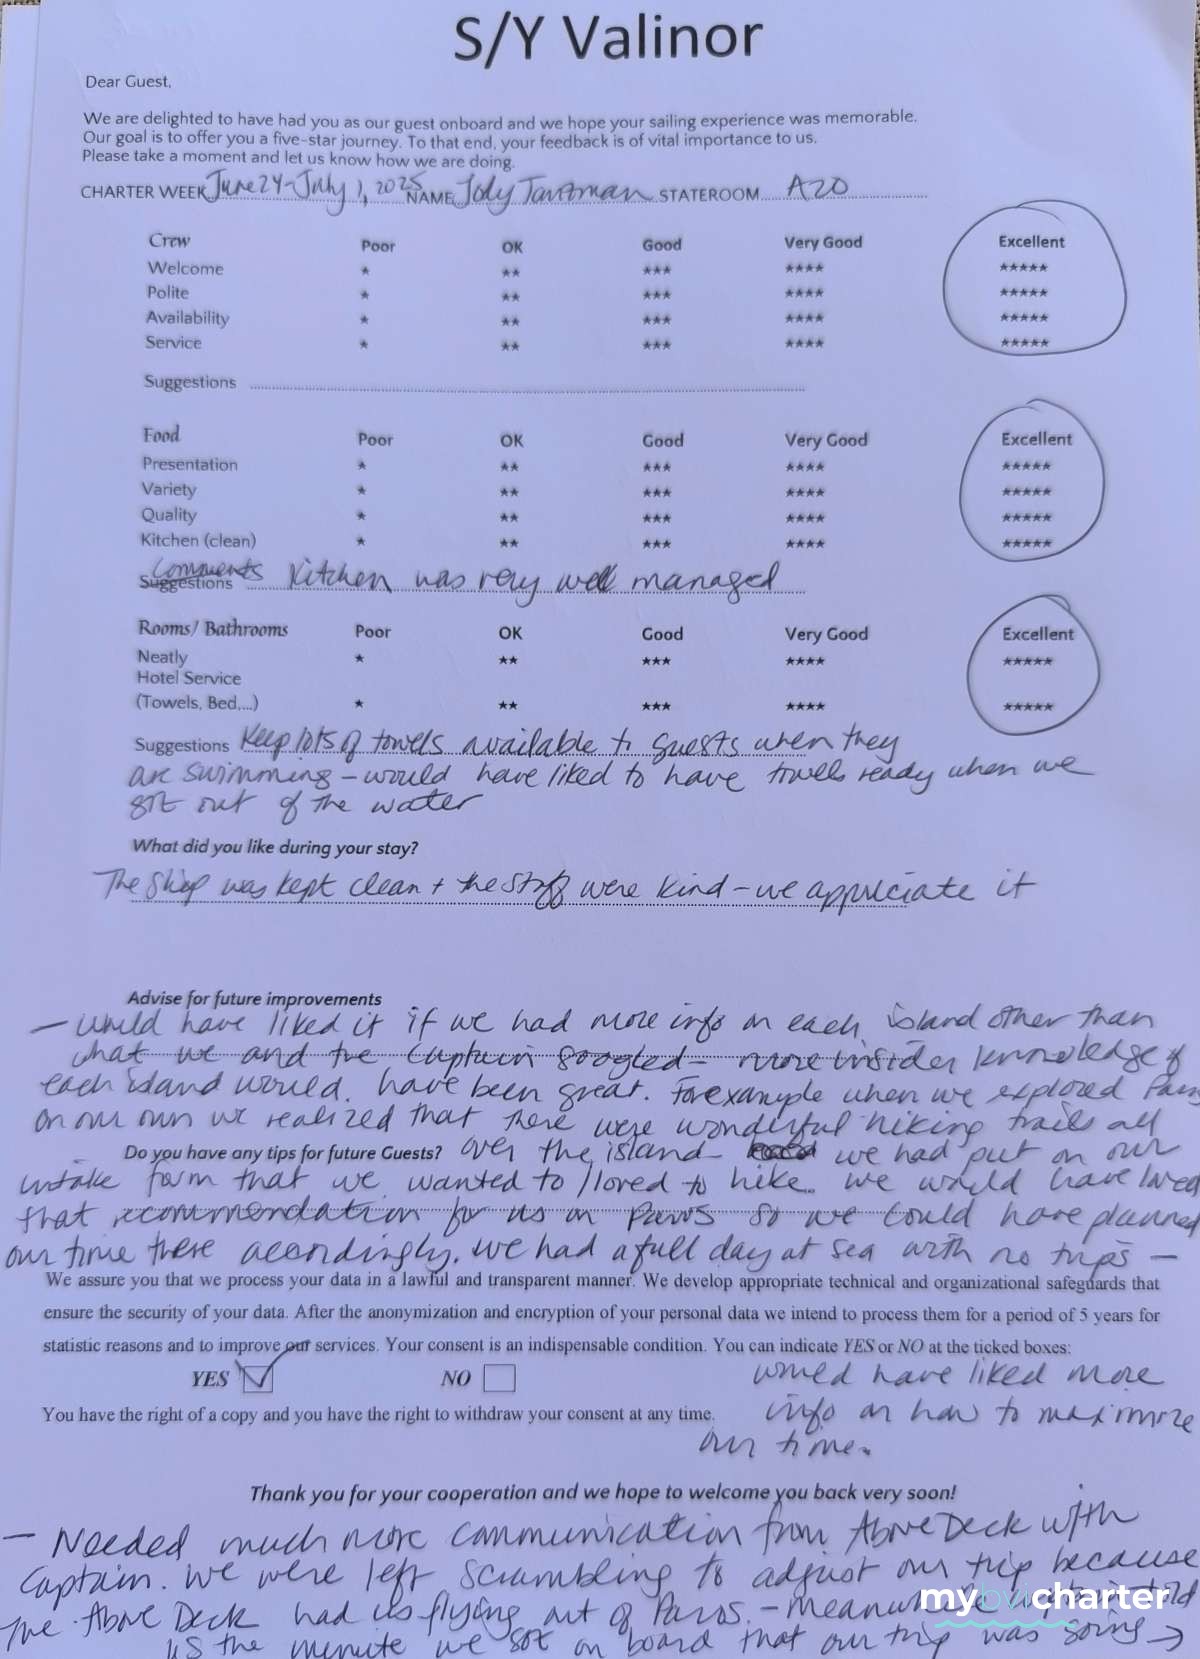 S/Y Valinor
Dear Guest,
We are delighted to have had you as our guest onboard and we hope your sailing experience was memorable.
Our goal is to offer you a five-star journey. To that end, your feedback is of vital importance to us.
Please take a moment and let us know how we are doing.
CHARTER WEEK June 24 - July 1, 2025 NAME Jody STATEROOM A20
Crew Poor OK Good Very Good Excellent
Welcome * ** *** **** *****
Polite * ** *** **** *****
Availability * ** *** **** *****
Service * ** *** **** *****
Suggestions
Food Poor OK Good Very Good Excellent
Presentation * ** *** **** *****
Variety * ** *** **** *****
Quality * ** *** **** *****
Kitchen (clean) * ** *** **** *****
Comments
Suggestions Kitchen was very well managed
Rooms/ Bathrooms Poor OK Good Very Good Excellent
Neatly * ** *** **** *****
Hotel Service
(Towels, Bed,...) * ** *** **** *****
Suggestions Keep lots of towels available to guests when they
are swimming - would have liked to have towels ready when we
got out of the water
What did you like during your stay?
The ship was kept clean + the staff were kind - we appreciate it
Advise for future improvements
- would have liked it if we had more info on each island other than
what we and the captain googled - more insider knowledge of
each island would have been great. For example when we explored Paros
on our own we realized that there were wonderful hiking trails all
Do you have any tips for future Guests? over the island - we had put on our
intake form that we wanted to/loved to hike. We would have loved
that recommendation for us on Paros so we could have planned
our time there accordingly. We had a full day at sea with no trips -
We assure you that we process your data in a lawful and transparent manner. We develop appropriate technical and organizational safeguards that
ensure the security of your data. After the anonymization and encryption of your personal data we intend to process them for a period of 5 years for
statistic reasons and to improve our services. Your consent is an indispensable condition. You can indicate YES or NO at the ticked boxes:
YES NO would have liked more
You have the right of a copy and you have the right to withdraw your consent at any time. info on how to maximize
our time.
Thank you for your cooperation and we hope to welcome you back very soon!
- Needed much more communication from Above Deck with
Captain. We were left scrambling to adjust our trip because
The Above Deck had us flying out of Paros. - Meanwhile captain told
us the minute we got on board that our trip was going →
mybvicharter